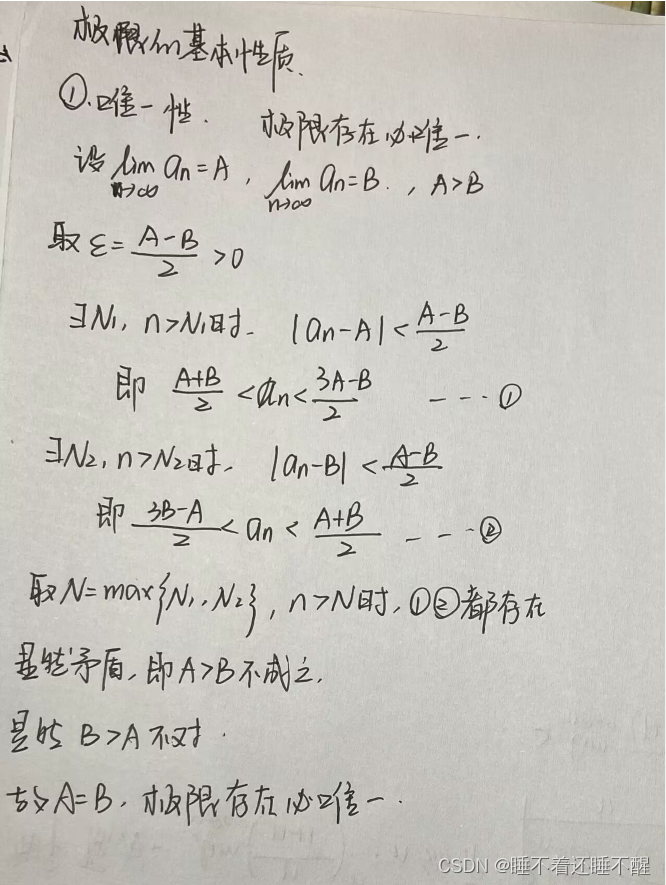 极限的基本性质.
①.唯一性. 极限存在必唯一.
设 lim n→∞ an=A, lim n→∞ an=B., A>B
取 ε=(A-B)/2 >0
∃N1, n>N1时. |an-A|<(A-B)/2
即 (A+B)/2 <an< (3A-B)/2 ---①
∃N2, n>N2时. |an-B|<(A-B)/2
即 (3B-A)/2 < an < (A+B)/2 ---②
取N=max{N1, N2}, n>N时, ①②都存在
显然矛盾, 即A>B不成立.
显然 B>A不对.
故A=B. 极限存在必唯一.
CSDN @睡不着还睡不醒